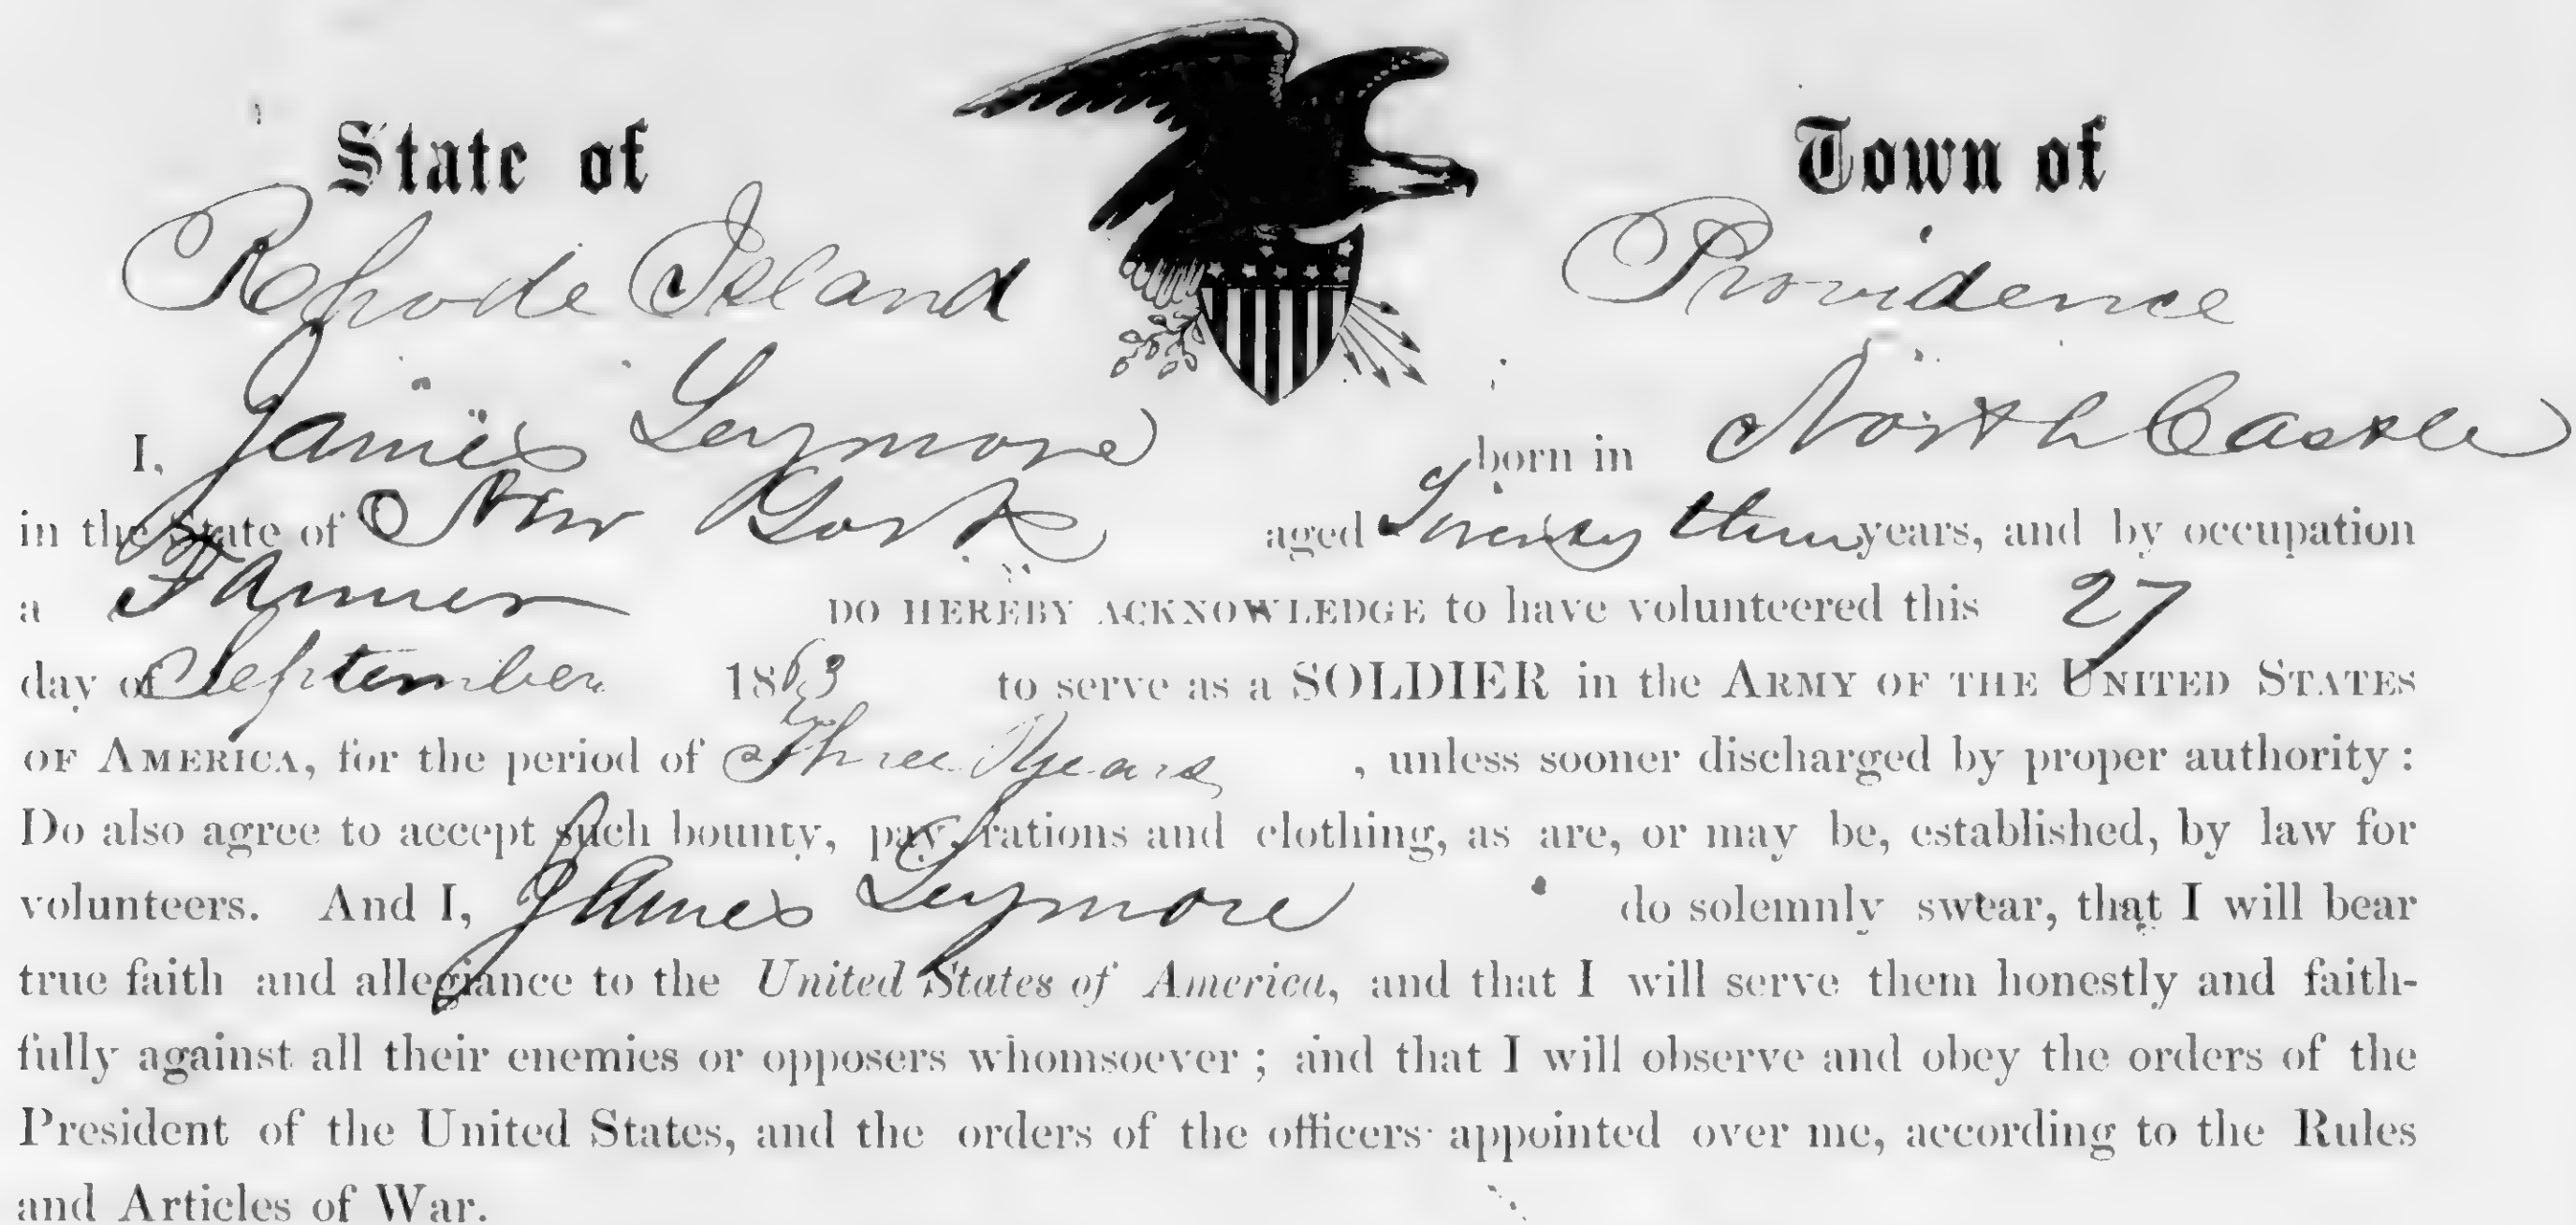 State of Town of
Rhode Island Providence
I, James Seymore born in North Castle
in the State of New York aged Twenty three years, and by occupation
a Farmer DO HEREBY ACKNOWLEDGE to have volunteered this 27
day of September 1863 to serve as a SOLDIER in the ARMY OF THE UNITED STATES
OF AMERICA, for the period of Three Years, unless sooner discharged by proper authority:
Do also agree to accept such bounty, pay, rations and clothing, as are, or may be, established, by law for
volunteers. And I, James Seymore do solemnly swear, that I will bear
true faith and allegiance to the United States of America, and that I will serve them honestly and faith-
fully against all their enemies or opposers whomsoever; and that I will observe and obey the orders of the
President of the United States, and the orders of the officers appointed over me, according to the Rules
and Articles of War.